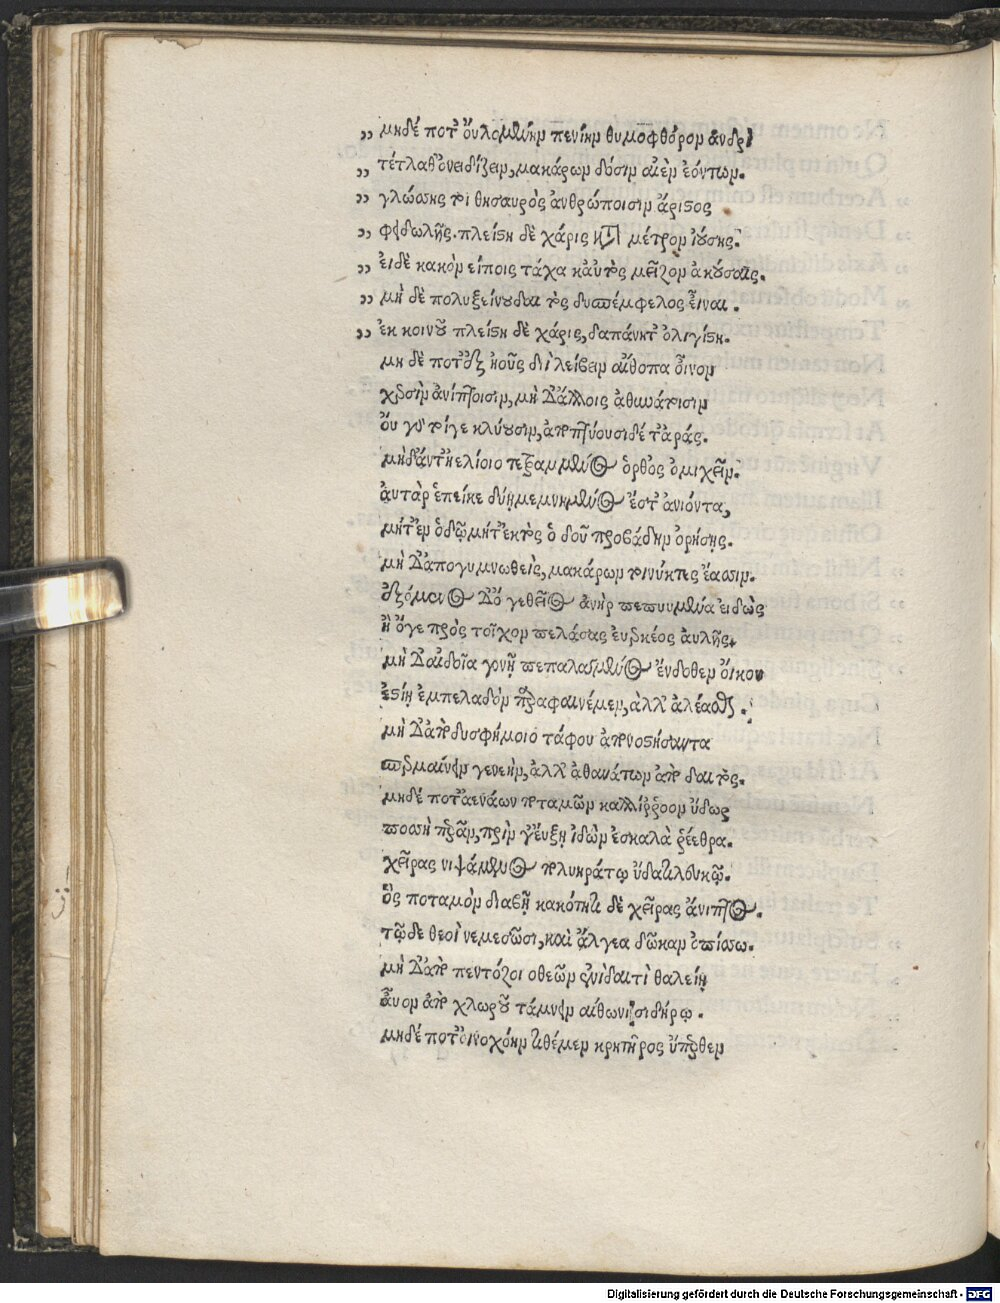 „ μηδέ ποτ' ὀυλομένην πενίην θυμοφθόρον ἀνδρὶ
„ τέτλαθ' ὀνειδίζειν, μακάρων δόσιν αἰὲν ἐόντων.
„ γλώσσης τοι θησαυρὸς ἀνθρώποισιν ἄριστος
„ φειδωλῆς. πλείστη δὲ χάρις κατὰ μέτρον ἰούσης.
„ ἐι δὲ κακὸν εἴποις τάχα κ' αὐτὸς μεῖζον ἀκούσαις.
„ μὴ δὲ πολυξείνου δαιτὸς δυσπέμφελος εἶναι.
„ ἐκ κοινοῦ πλείστη δὲ χάρις, δαπάνη τ' ὀλιγίστη.
μη δὲ ποτ' ἐξ ἠοῦς διῒ λείβειν αἴθοπα οἶνον
χερσὶν ἀνίπτοισιν, μὴ δ' ἄλλοις ἀθανάτοισιν
ὀυ γάρ τοί γε κλύουσιν, ἀποπτύουσι δέ τ' ἀράς.
μηδ' ἄντ' ἠελίοιο τετραμμένος ὀρθὸς ὀμιχεῖν.
ἀυτὰρ ἐπεί κε δύῃ μεμνημένος ἔς τ' ἀνιόντα,
μήτ' ἐν ὁδῷ μήτ' ἐκτὸς ὁδοῦ προβάδην ὀρήσῃς.
μὴ δ' ἀπογυμνωθεὶς, μακάρων τοι νύκτες ἔασσιν.
ἑζόμενος δ' ὅ γε θεῖος ἀνὴρ πεπνυμένα εἰδὼς
ἢ ὅγε πρὸς τοῖχον πελάσας ἐυερκέος ἀυλῆς.
μὴ δ' αἰδοῖα γονῇ πεπαλαγμένος ἔνδοθεν ὄικου
ἑστίῃ ἐμπελαδὸν παραφαινέμεν, ἀλλ' ἀλέασθαι.
μὴ δ' ἀπὸ δυσφήμοιο τάφου ἀπονοστήσαντα
σπερμαίνειν γενεὴν, ἀλλ' ἀθανάτων ἀπὸ δαιτός.
μηδέ ποτ' ἀενάων ποταμῶν καλλίρροον ὕδωρ
ποσσὶ περᾶν, πρίν γ' ἔυξῃ ἰδὼν ἐς καλὰ ῥέεθρα.
χεῖρας νιψάμενος πολυηράτῳ ὕδατι λευκῷ.
ὃς ποταμὸν διαβῇ κακότητι δὲ χεῖρας ἄνιπτος.
τῷ δε θεοὶ νεμεσῶσι, καὶ ἄλγεα δῶκαν ὀπίσσω.
μὴ δ' ἀπὸ πεντόζοιο θεῶν ἐνὶ δαιτὶ θαλείῃ
ἆυον ἀπὸ χλωροῦ τάμνειν αἴθωνι σιδήρῳ.
μηδέ ποτ' ὀινοχόην τιθέμεν κρητῆρος ὕπερθεν
Digitalisierung gefördert durch die Deutsche Forschungsgemeinschaft - DFG